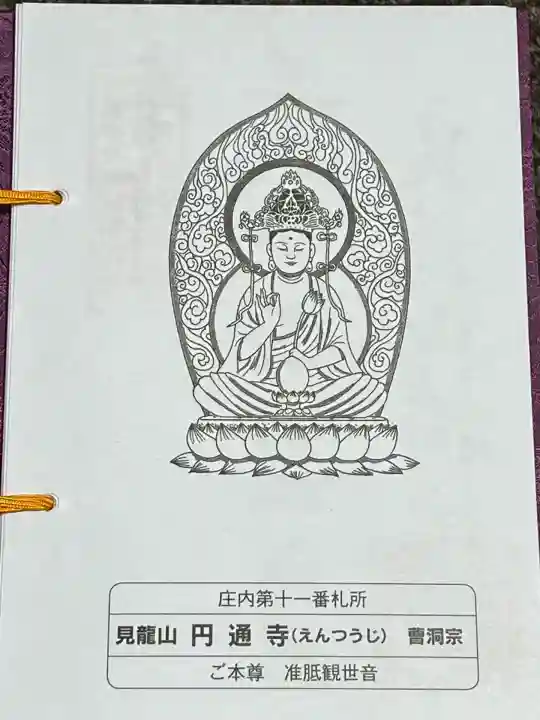 庄内第十一番札所
見龍山 円通寺(えんつうじ) 曹洞宗
ご本尊 准胝観世音